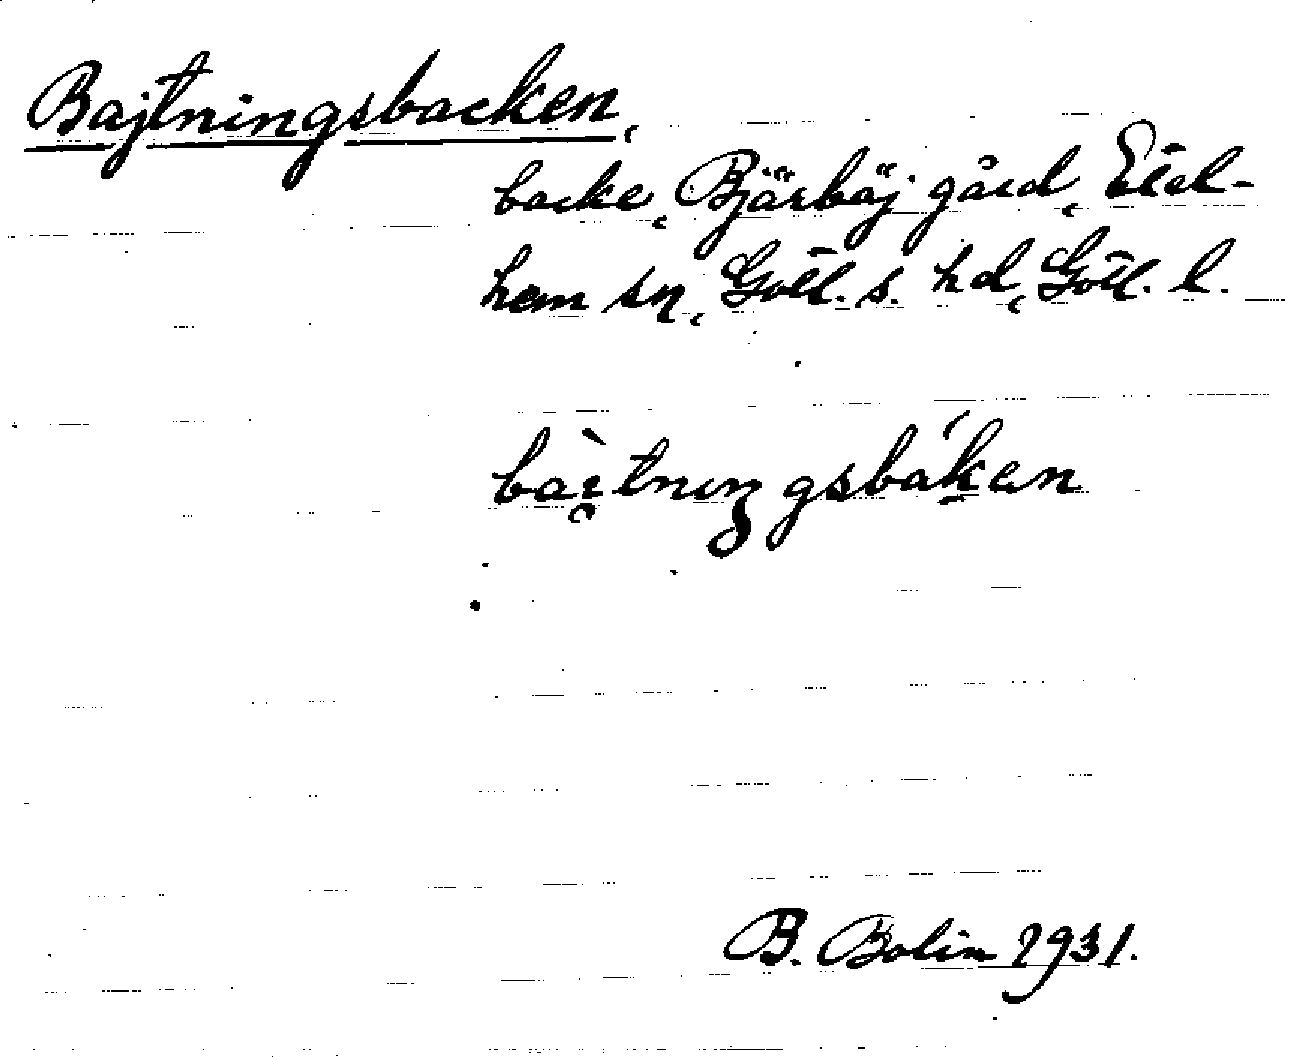 Bajtningsbacken,
backe, Bjärbäj gård, Etel-
hem sn, Gotl. s. hd, Gotl. l.
bài̯tnıŋgsbáken
B. Bolin 1931.